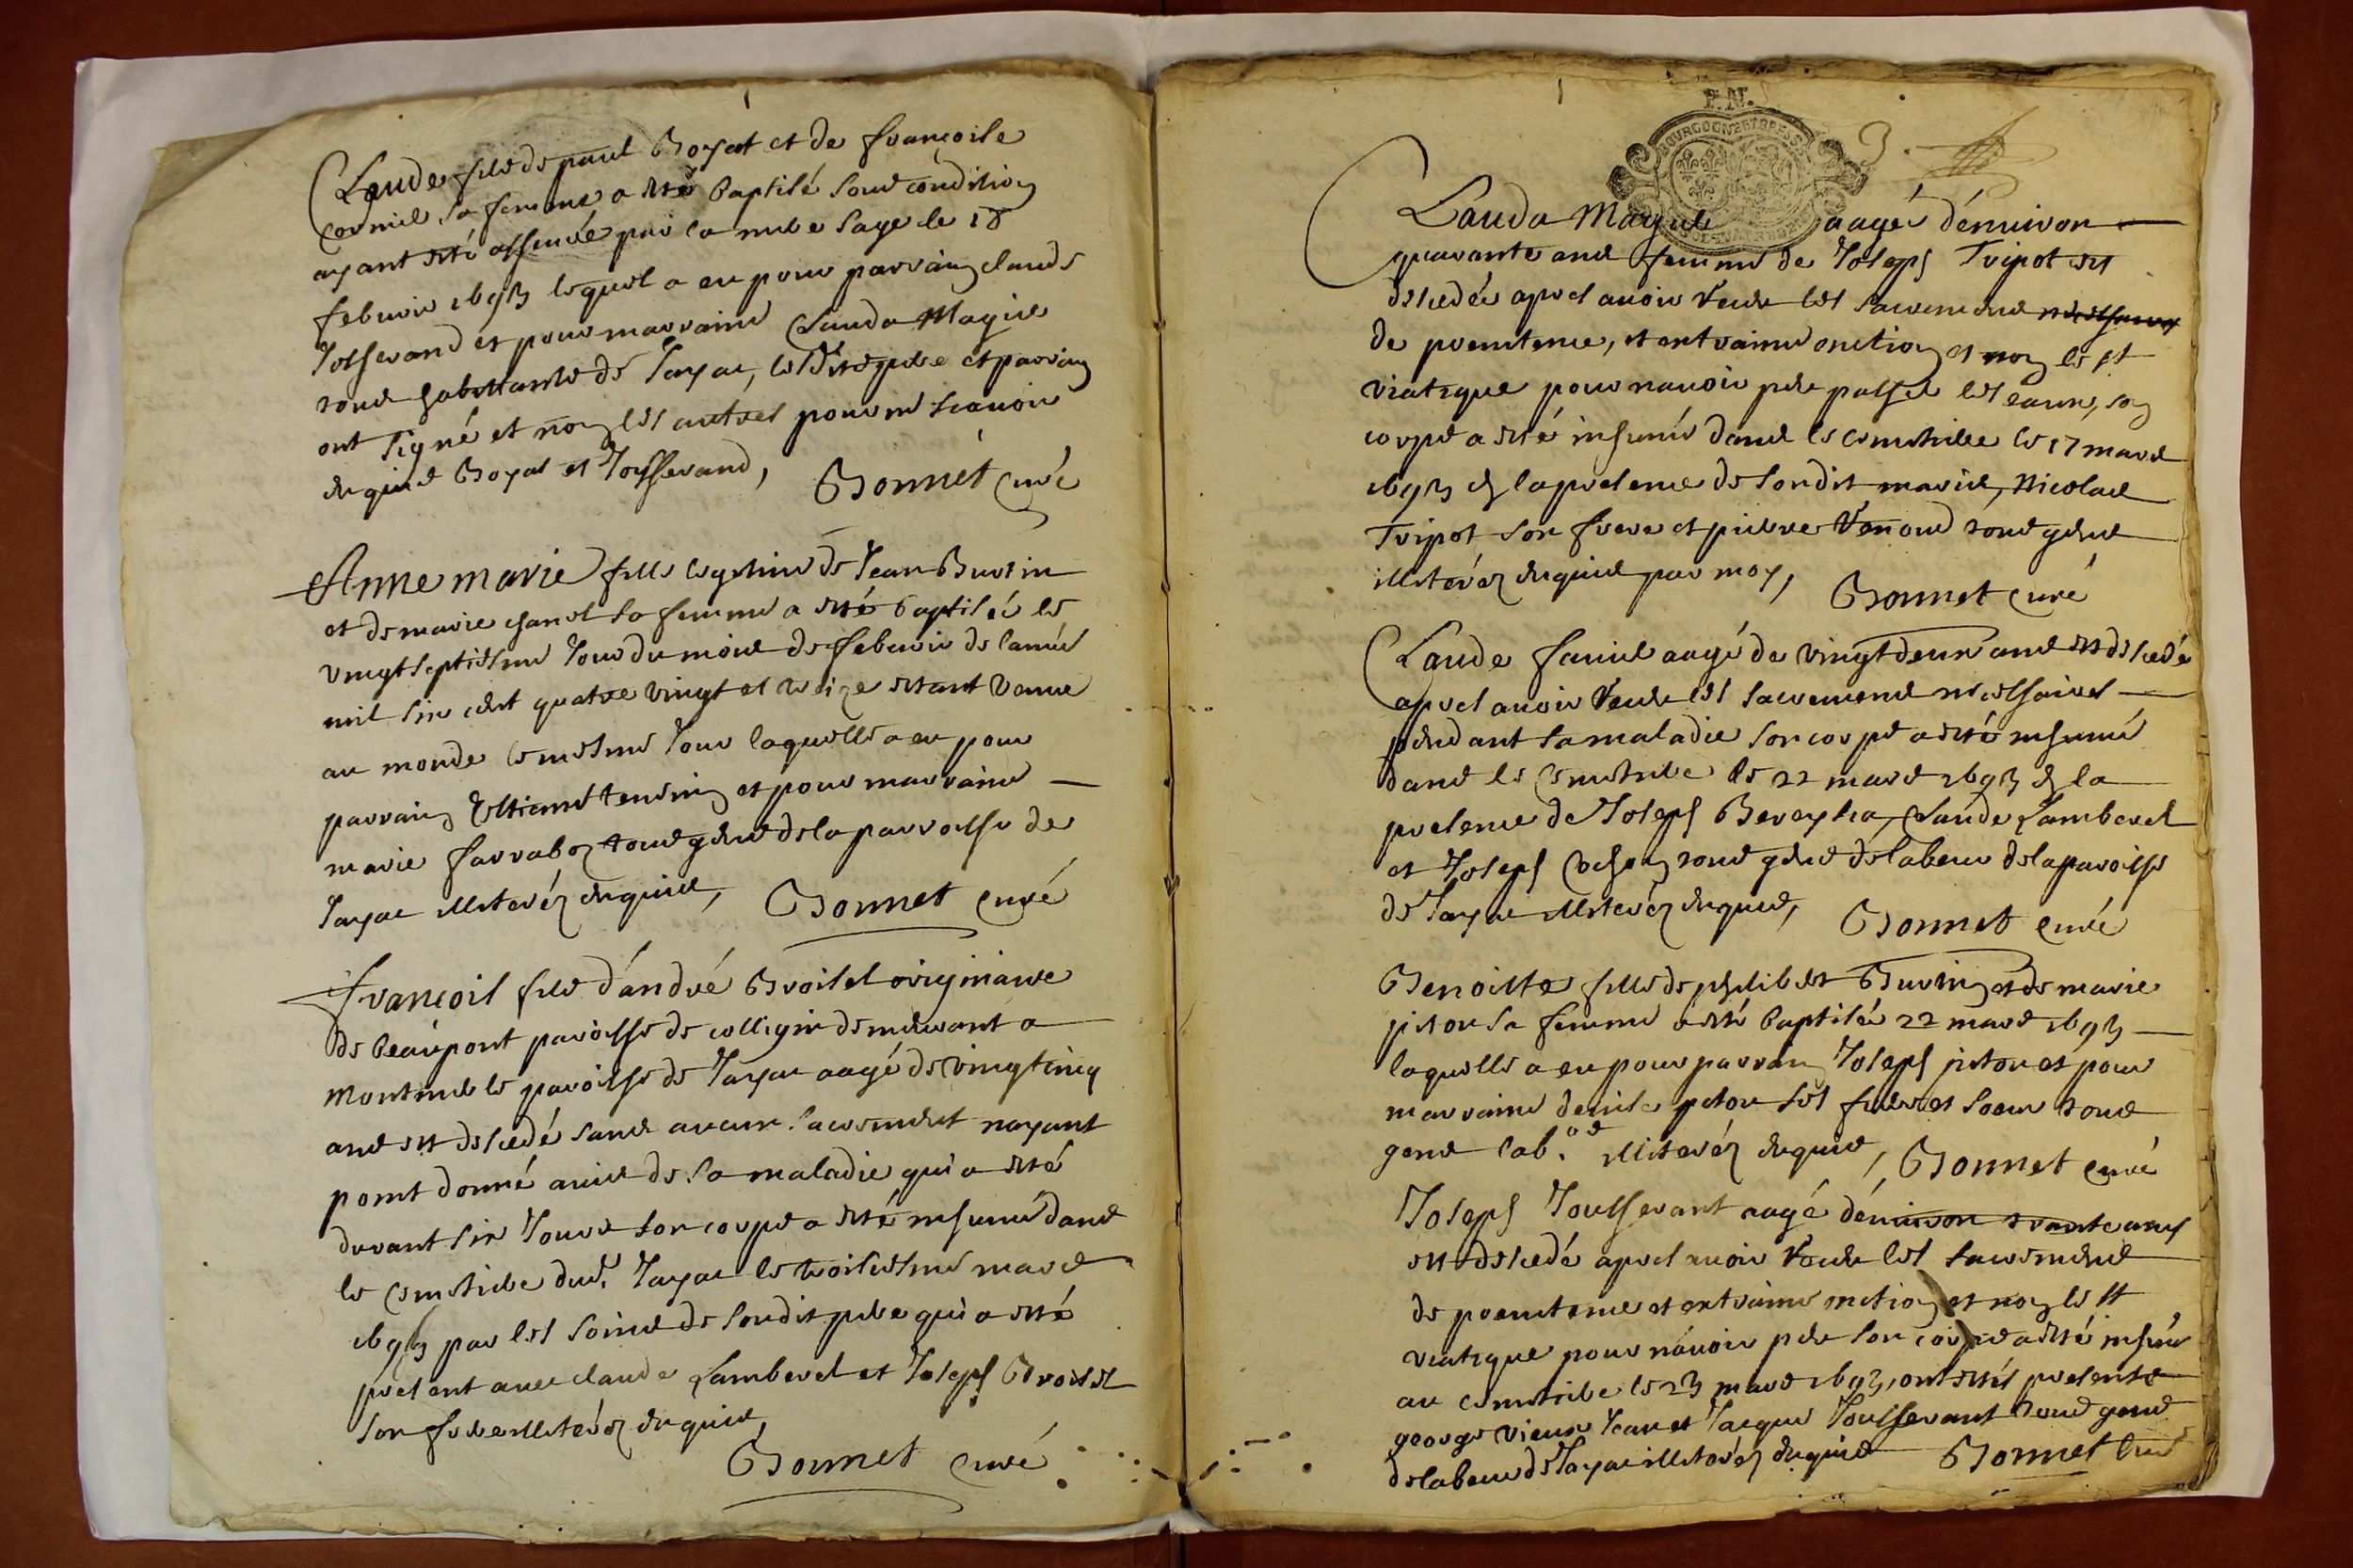 Claude fils de paul Boyat et de françoise
Cormil sa femme a esté baptisé sous condition
ayant esté asseuré par la mere sage le 18
febvrier 1693 lequel a eu pour parrain claude
Josserand et pour marraine Clauda Magis
tous habittants de Jayac, lesd. pere et parrain
ont signé et non les autres pour ne scavoir
enquis Boyat et Josserand, Bonnet curé
Anne marie fille legitime de Jean Burtin
et de marie chanel sa femme a esté baptisée le
vingt septiesme jour du mois de febvrier de lannée
mil six cent quatre vingt et treize estant venue
au monde le mesme jour laquelle a eu pour
parrain Estienne et pour marraine
marie tous gens de la parroisse de
Jayac illiterés enquis, Bonnet curé
françois fils d'andré Broisel originaire
de beaupont paroisse de colligni demeurant a
paroisse de Jayac aagé de vingt cinq
ans est decedé sans aucun sacrement nayant
point donné avis de sa maladie qui a esté
devant six jours son corps a esté inhumé dans
le cimetiere dud. Jayac le troisiesme mars
1693 par les soins de sondit pere qui a esté
present avec claude Lamberel et Joseph Broisel
son frere illiterés enquis,
Bonnet curé
P.N.
3.
Clauda Magis aagée d'environ
quarante ans femme de Joseph Tripot est
decedée apres avoir receu les sacremens
de penitence, et extraime onction et non le st
viatique pour navoir peu passer les eaux, son
corps a esté inhumé dans le cimetiere le 17 mars
1693 en la presence de sondit maris, Nicolas
Tripot son frere et pierre Venoud tous gens
illiterés enquis par moy, Bonnet curé
Claude aagé de vingt deux ans est decedé
apres avoir receu les sacremens necessaires
pendant sa maladie son corps a esté inhumé
dans le cimetiere le 22 mars 1693 en la
presence de Joseph Claude Lamberel
et Joseph Cochon tous gens de labeur de la paroisse
de Jayac illiterés enquis, Bonnet curé
Benoitte fille de philibert Burtin et de marie
piton sa femme a esté baptisée 22 mars 1693
laquelle a eu pour parrain Joseph piton et pour
marraine denise piton ses frere et soeur tous
gens lab.rs illiterés enquis, Bonnet curé
Joseph Jousserant aagé d'environ trente ans
est decedé apres avoir receu les sacremens
de penitence et extraime onction et non le st
viatique pour n'avoir peu son corps a esté inhumé
au cimetiere le 23 mars 1693, ont estés presents
george vieux Jean et Jacque Jousserant tous gens
de labeur de Jayac illiterés enquis Bonnet curé